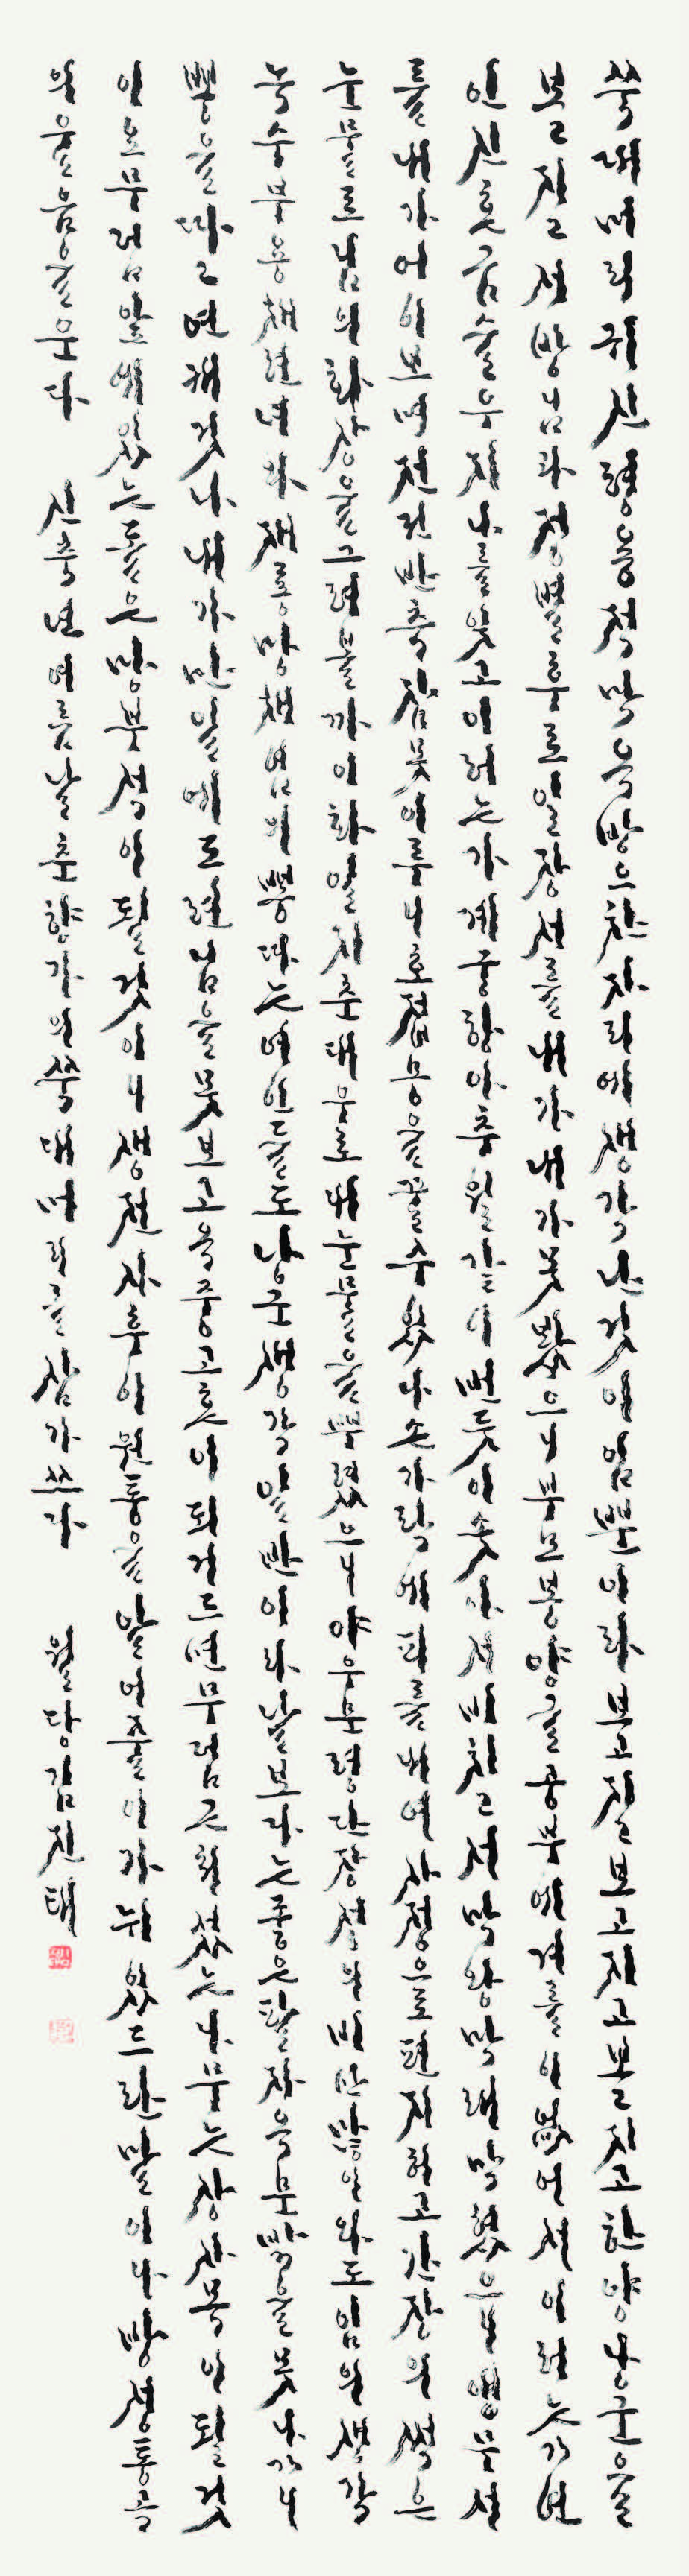 쑥대머리 귀신형용 적막옥방으 찬자리에 생각난 것이 임뿐이라 보고지고 보고지고 보고지고 한양낭군을
보고지고 서방님과 정별후로 일장서를 내가 못봤으니 부모봉양 글공부에 겨를이 없어서 이러는가 연
이신혼 금슬우지 나를 잊고 이러는가 계궁항아 추월같이 번듯이 솟아서 비치고저 막왕막래 막혔으니 앵무서
를 내가 어이 보며 전전반측 잠못이루니 호접몽을 꿀 수 있나 손가락에 피를 내여 사정으로 편지하고 간장의 썩은
눈물로 님의 화상을 그려볼까 이화일지춘대우로 내눈물을 뿌렸으니 야우문령단장성의 비만 많이 와도 임의 생각
녹수부용채련녀와 제롱망채엽의 뽕따는 여인들도 낭군생각 일반이라 날보다는 좋은 팔자 옥문밖을 못나가니
뽕을 따고 연캐겄나 내가 만일에 도련님을 못보고 옥중고혼이 되거드면 무덤근처 있는 나무는 상사목이 될 것
이오 무덤앞에 있는 돌은 망부석이 될 것이니 생전사후 이 원통을 알어줄 이가 뉘 있드란 말이냐 방성통곡
의 울음을 운다 신축년 여름날 춘향가의 쑥대머리를 삼가쓰다 월당 김진태